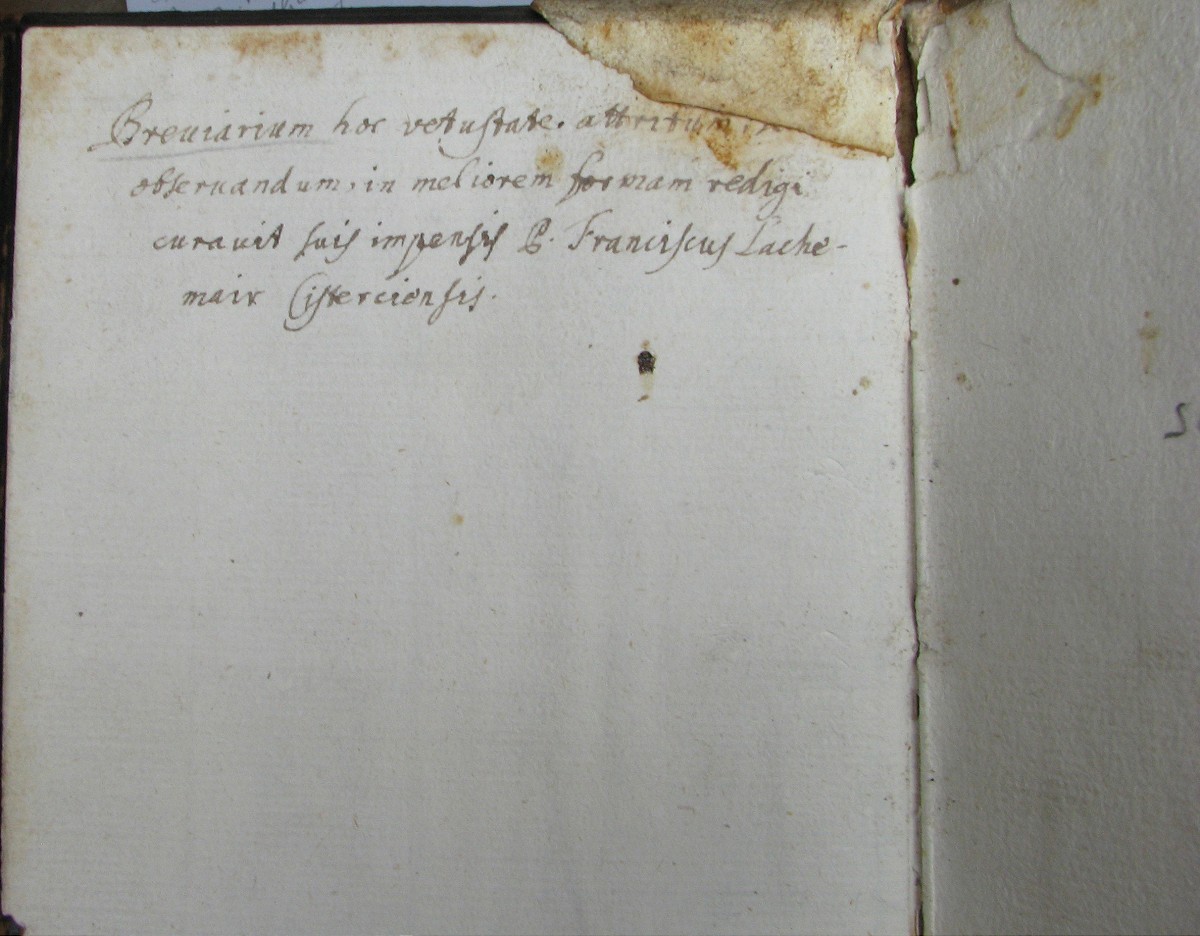 Breuiarium hoc vetustate. attritum,
obseruandum, in meliorem formam redigi
curauit suis impensis P. Franciscus Lache-
mair Cisterciensis.